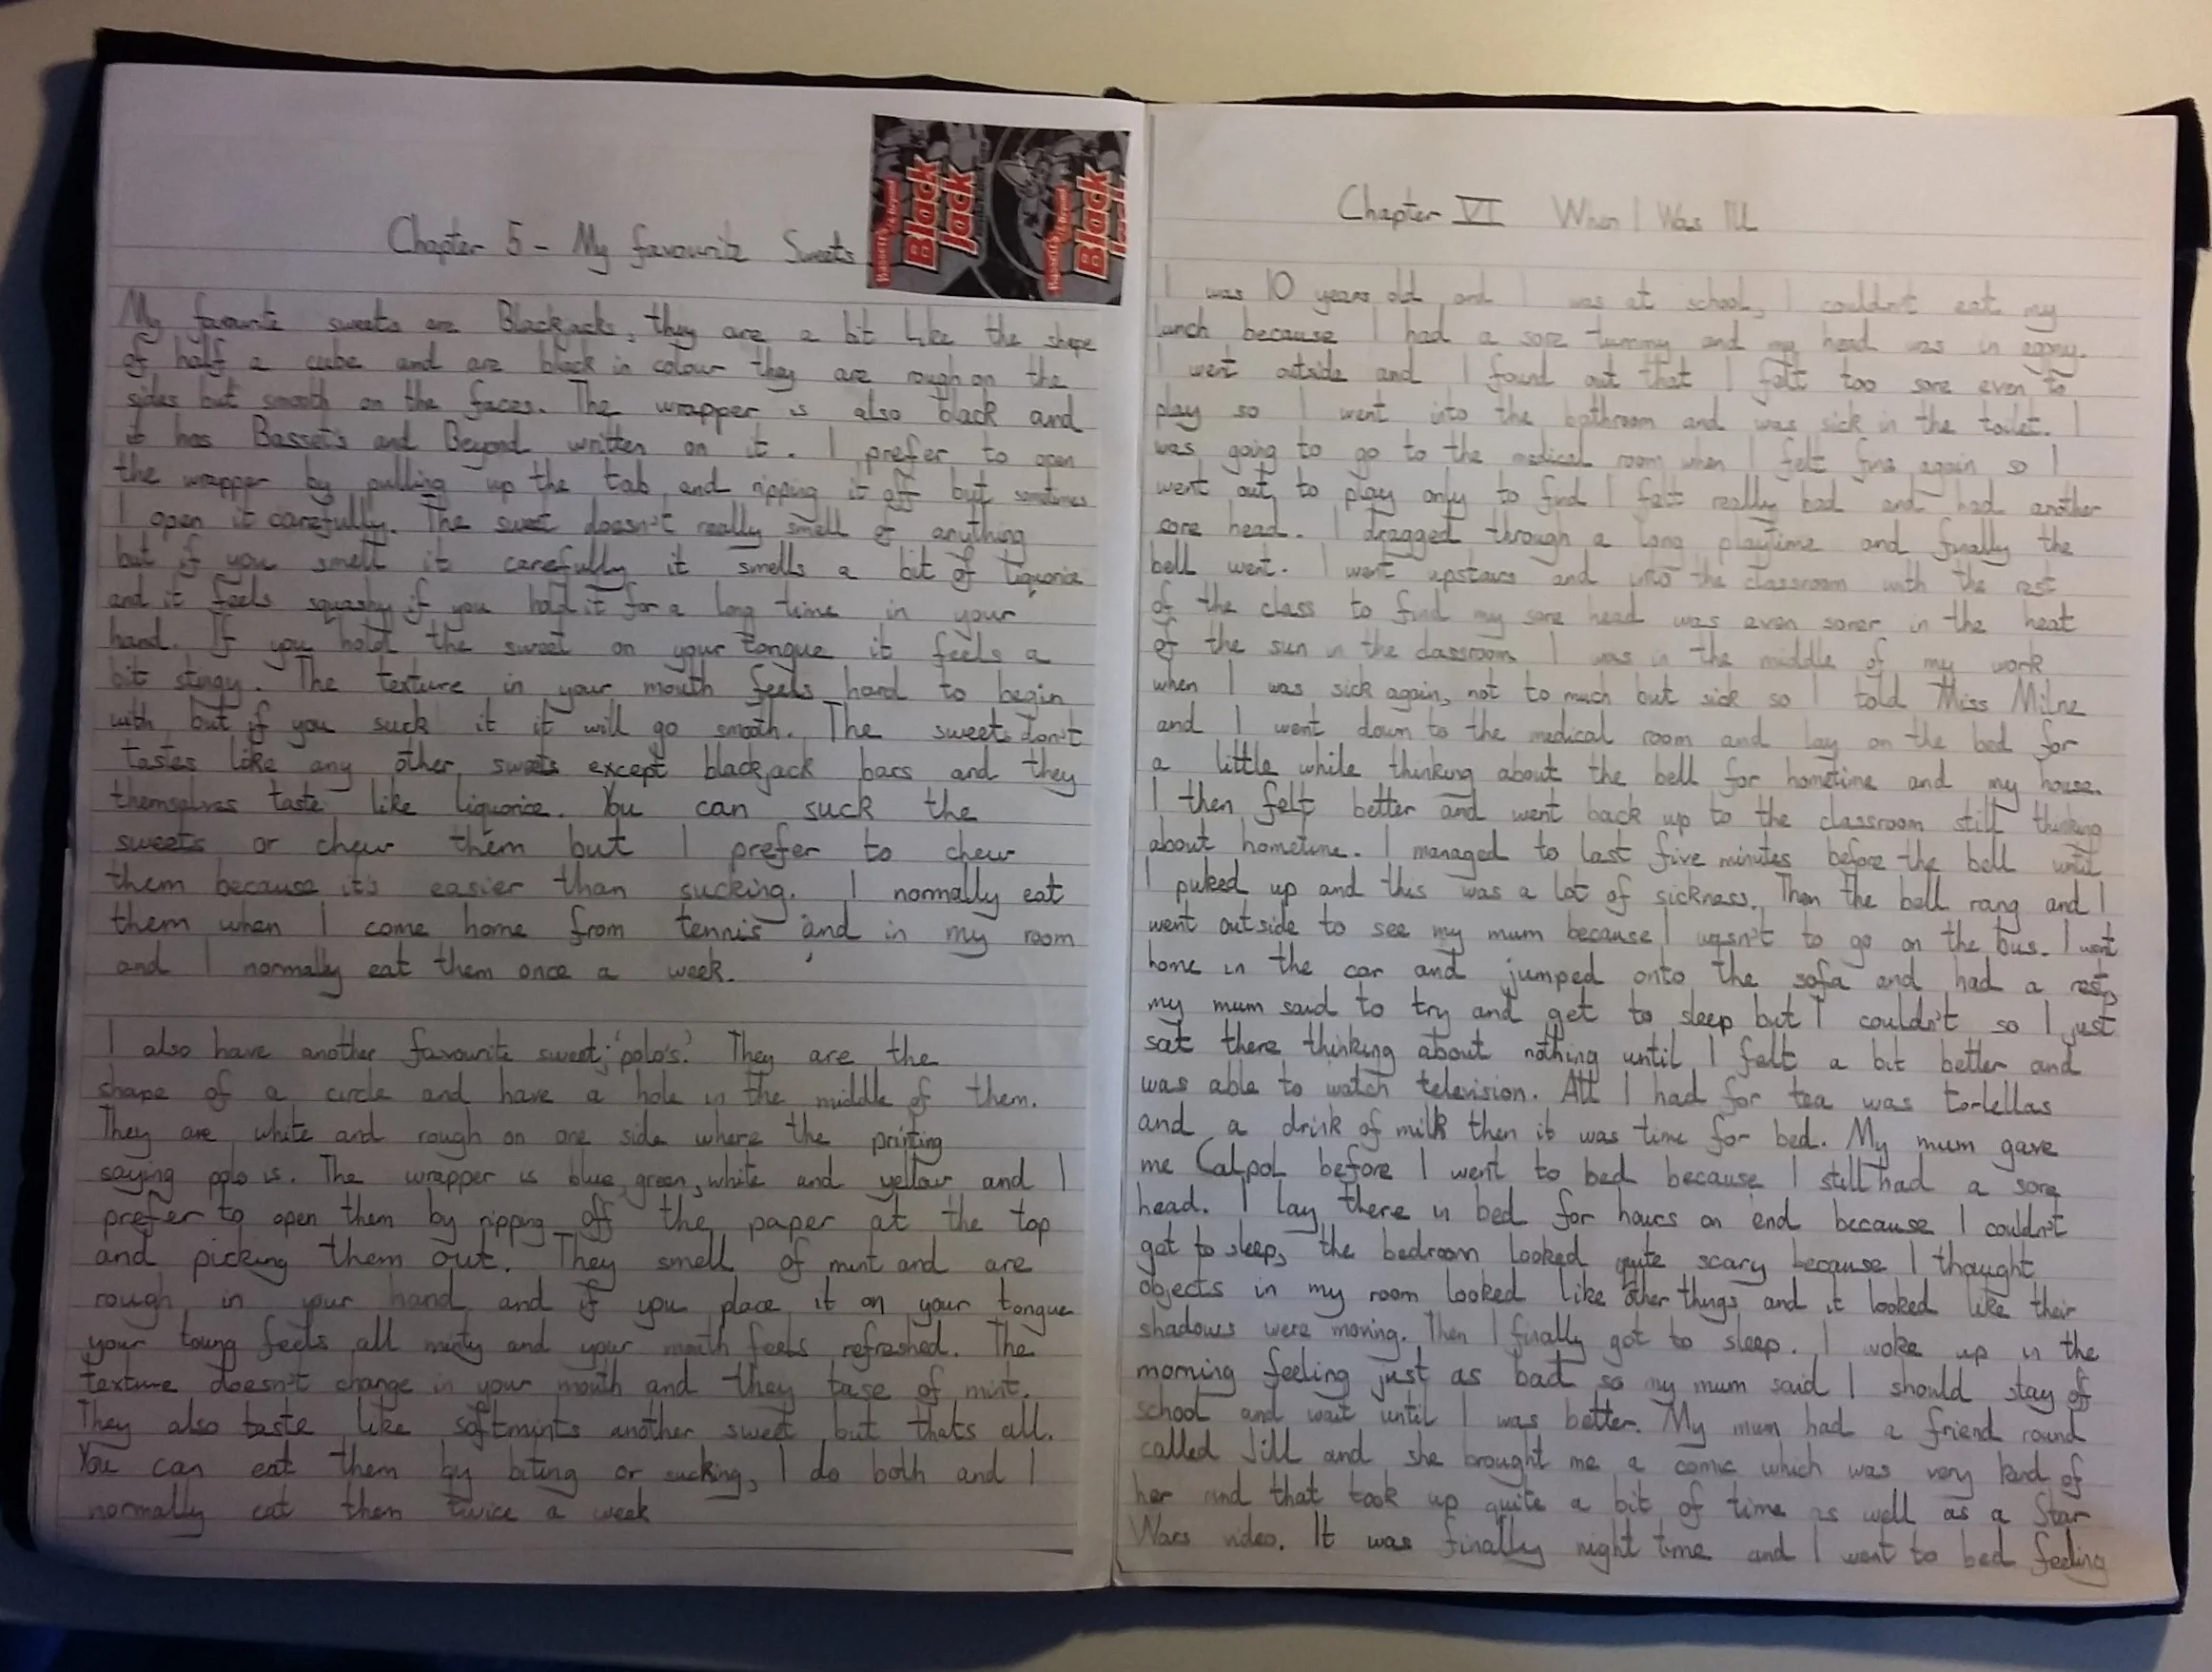 Chapter 5 - My favourite Sweets
Bassett's & Beyond
Black
Jack
Bassett's & Beyond
Black
My favourite sweets are Blackjacks, they are a bit like the shape
of half a cube and are black in colour they are rough on the
sides but smooth on the faces. The wrapper is also black and
it has Basset's and Beyond written on it. I prefer to open
the wrapper by pulling up the tab and ripping it off but sometimes
I open it carefully. The sweet doesn't really smell of anything
but if you smell it carefully it smells a bit of liquorice
and it feels squashy if you hold it for a long time in your
hand. If you hold the sweet on your tongue it feels a
bit stingy. The texture in your mouth feels hard to begin
with but if you suck it it will go smooth. The sweets don't
tastes like any other sweets except blackjack bars and they
themselves taste like liquorice. You can suck the
sweets or chew them but I prefer to chew
them because it's easier than sucking. I normally eat
them when I come home from tennis and in my room
and I normally eat them once a week.
I also have another favourite sweet; 'polo's'. They are the
shape of a circle and have a hole in the middle of them.
They are white and rough on one side where the printing
saying polo is. The wrapper is blue, green, white and yellow and I
prefer to open them by ripping off the paper at the top
and picking them out. They smell of mint and are
rough in your hand and if you place it on your tongue
your toung feels all minty and your mouth feels refreshed. The
texture doesn't change in your mouth and they tase of mint.
They also taste like softmints another sweet but thats all.
You can eat them by biting or sucking, I do both and I
normally eat them twice a week
Chapter VI When I Was Ill
I was 10 years old and I was at school, I couldn't eat my
lunch because I had a sore tummy and my head was in agony.
I went outside and I found out that I felt too sore even to
play so I went into the bathroom and was sick in the toilet. I
was going to go to the medical room when I felt fine again so I
went out to play only to find I felt really bad and had another
sore head. I dragged through a long playtime and finally the
bell went. I went upstairs and into the classroom with the rest
of the class to find my sore head was even sorer in the heat
of the sun in the classroom I was in the middle of my work
when I was sick again, not to much but sick so I told Miss Milne
and I went down to the medical room and lay on the bed for
a little while thinking about the bell for hometime and my house.
I then felt better and went back up to the classroom still thinking
about hometime. I managed to last five minutes before the bell until
I puked up and this was a lot of sickness. Then the bell rang and I
went outside to see my mum because I wasn't to go on the bus. I went
home in the car and jumped onto the sofa and had a rest,
my mum said to try and get to sleep but I couldn't so I just
sat there thinking about nothing until I felt a bit better and
was able to watch television. All I had for tea was tortellas
and a drink of milk then it was time for bed. My mum gave
me Calpol before I went to bed because I still had a sore
head. I lay there in bed for hours on end because I couldn't
get to sleep, the bedroom looked quite scary because I thought
objects in my room looked like other things and it looked like their
shadows were moving. Then I finally got to sleep. I woke up in the
morning feeling just as bad so my mum said I should stay off
school and wait until I was better. My mum had a friend round
called Jill and she brought me a comic which was very kind of
her and that took up quite a bit of time as well as a Star
Wars video. It was finally night time and I went to bed feeling